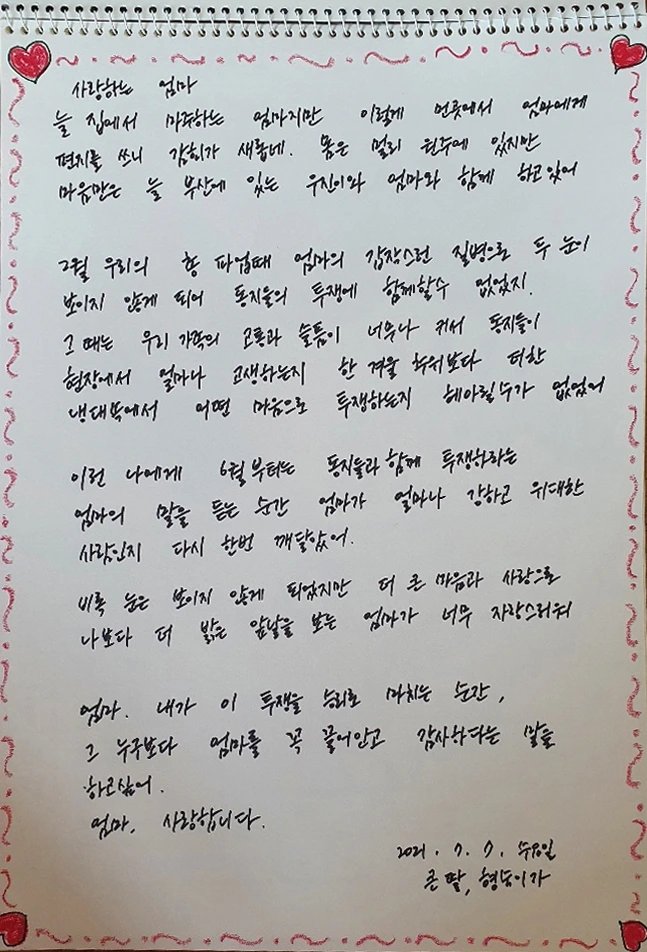 사랑하는 엄마
늘 집에서 마주하는 엄마지만 이렇게 먼곳에서 엄마에게
편지를 쓰니 감회가 새롭네. 몸은 멀리 원주에 있지만
마음만은 늘 부산에 있는 우진이와 엄마와 함께 하고있어
2월 우리의 총 파업때 엄마의 갑작스런 질병으로 두 눈이
보이지 않게 되어 동지들의 투쟁에 함께할수 없었지.
그 때는 우리 가족의 고통과 슬픔이 너무나 커서 동지들이
현장에서 얼마나 고생하는지 한 겨울 추위보다 더한
냉대속에서 어떤 마음으로 투쟁하는지 헤아릴수가 없었어
이런 나에게 6월부터는 동지들과 함께 투쟁하라는
엄마의 말을 듣는 순간 엄마가 얼마나 강하고 위대한
사람인지 다시 한번 깨달았어.
비록 눈은 보이지 않게 되었지만 더 큰 마음과 사랑으로
나보다 더 밝은 앞날을 보는 엄마가 너무 자랑스러워
엄마. 내가 이 투쟁을 승리로 마치는 순간,
그 누구보다 엄마를 꼭 끌어안고 감사하다는 말을
하고싶어.
엄마, 사랑합니다.
2021. 7. 7. 수요일
큰 딸, 형승이가